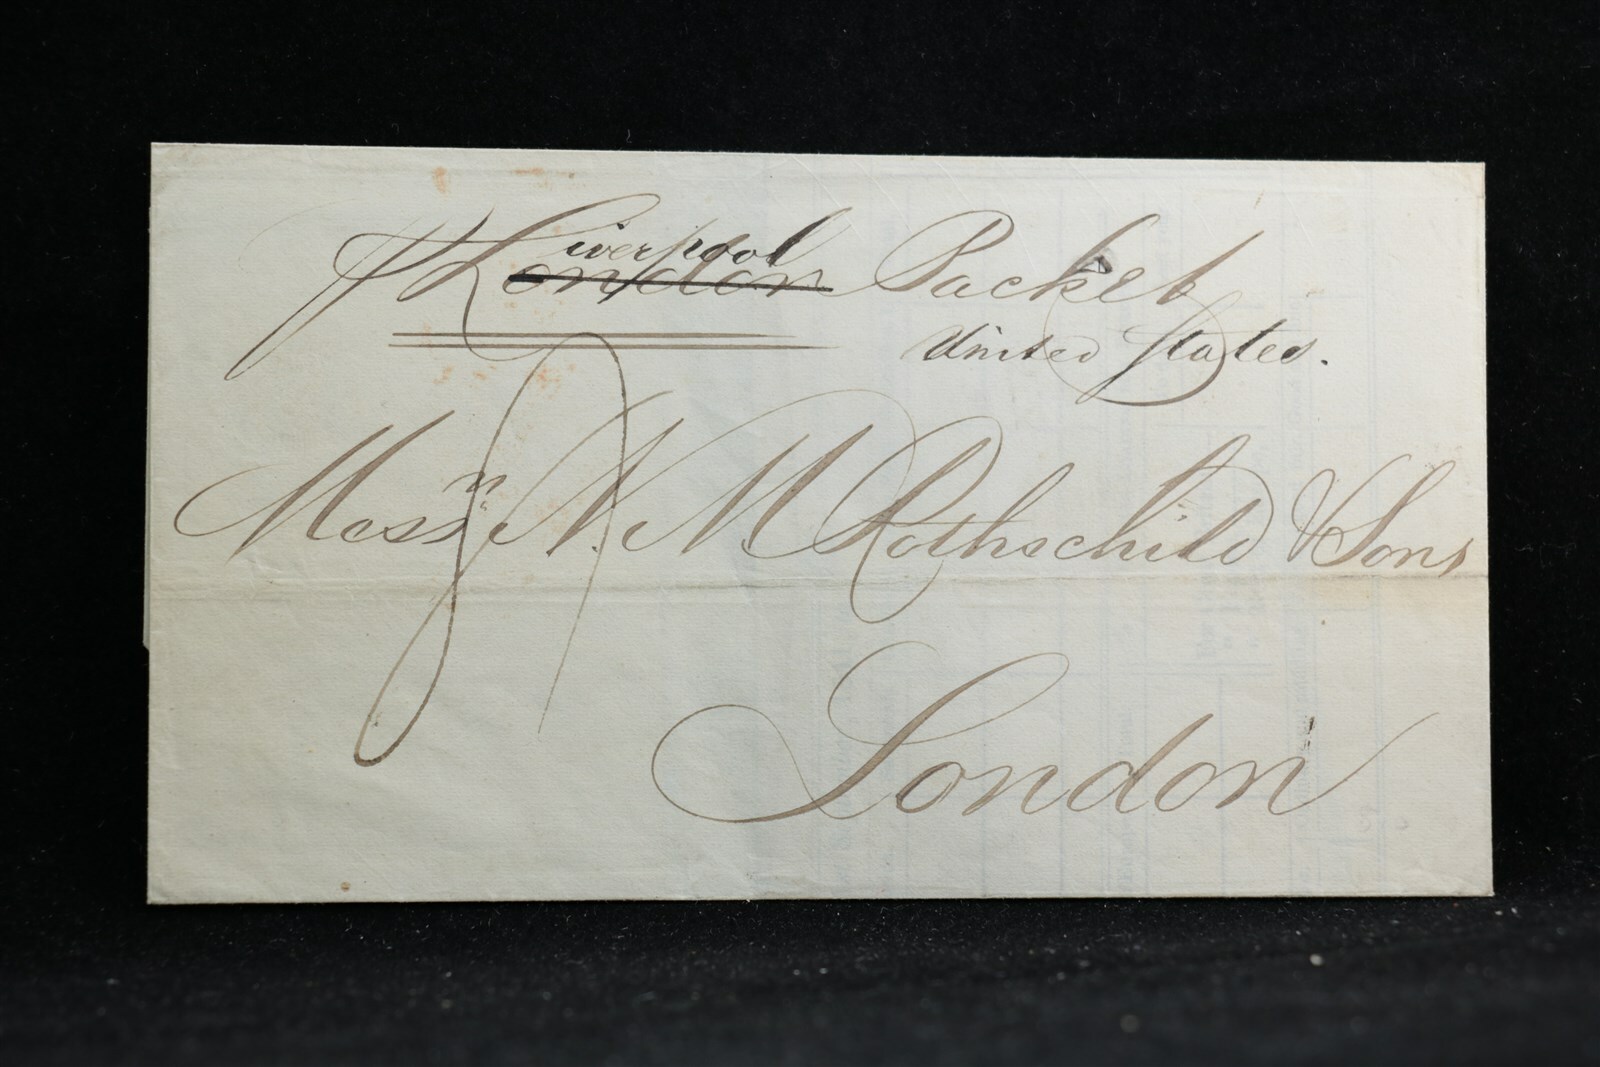 p Liverpool London Packet
United States.
Messrs N. M. Rothschild & Sons
London